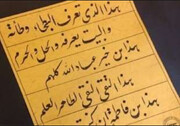 هذا الذي تعرف البطحاء وطأته
والبيت يعرفه والحل والحرم
هذا بن خير عباد الله كلهم
هذا التقي النقي الطاهر العلم
هذا بن فاطمة ان كنت